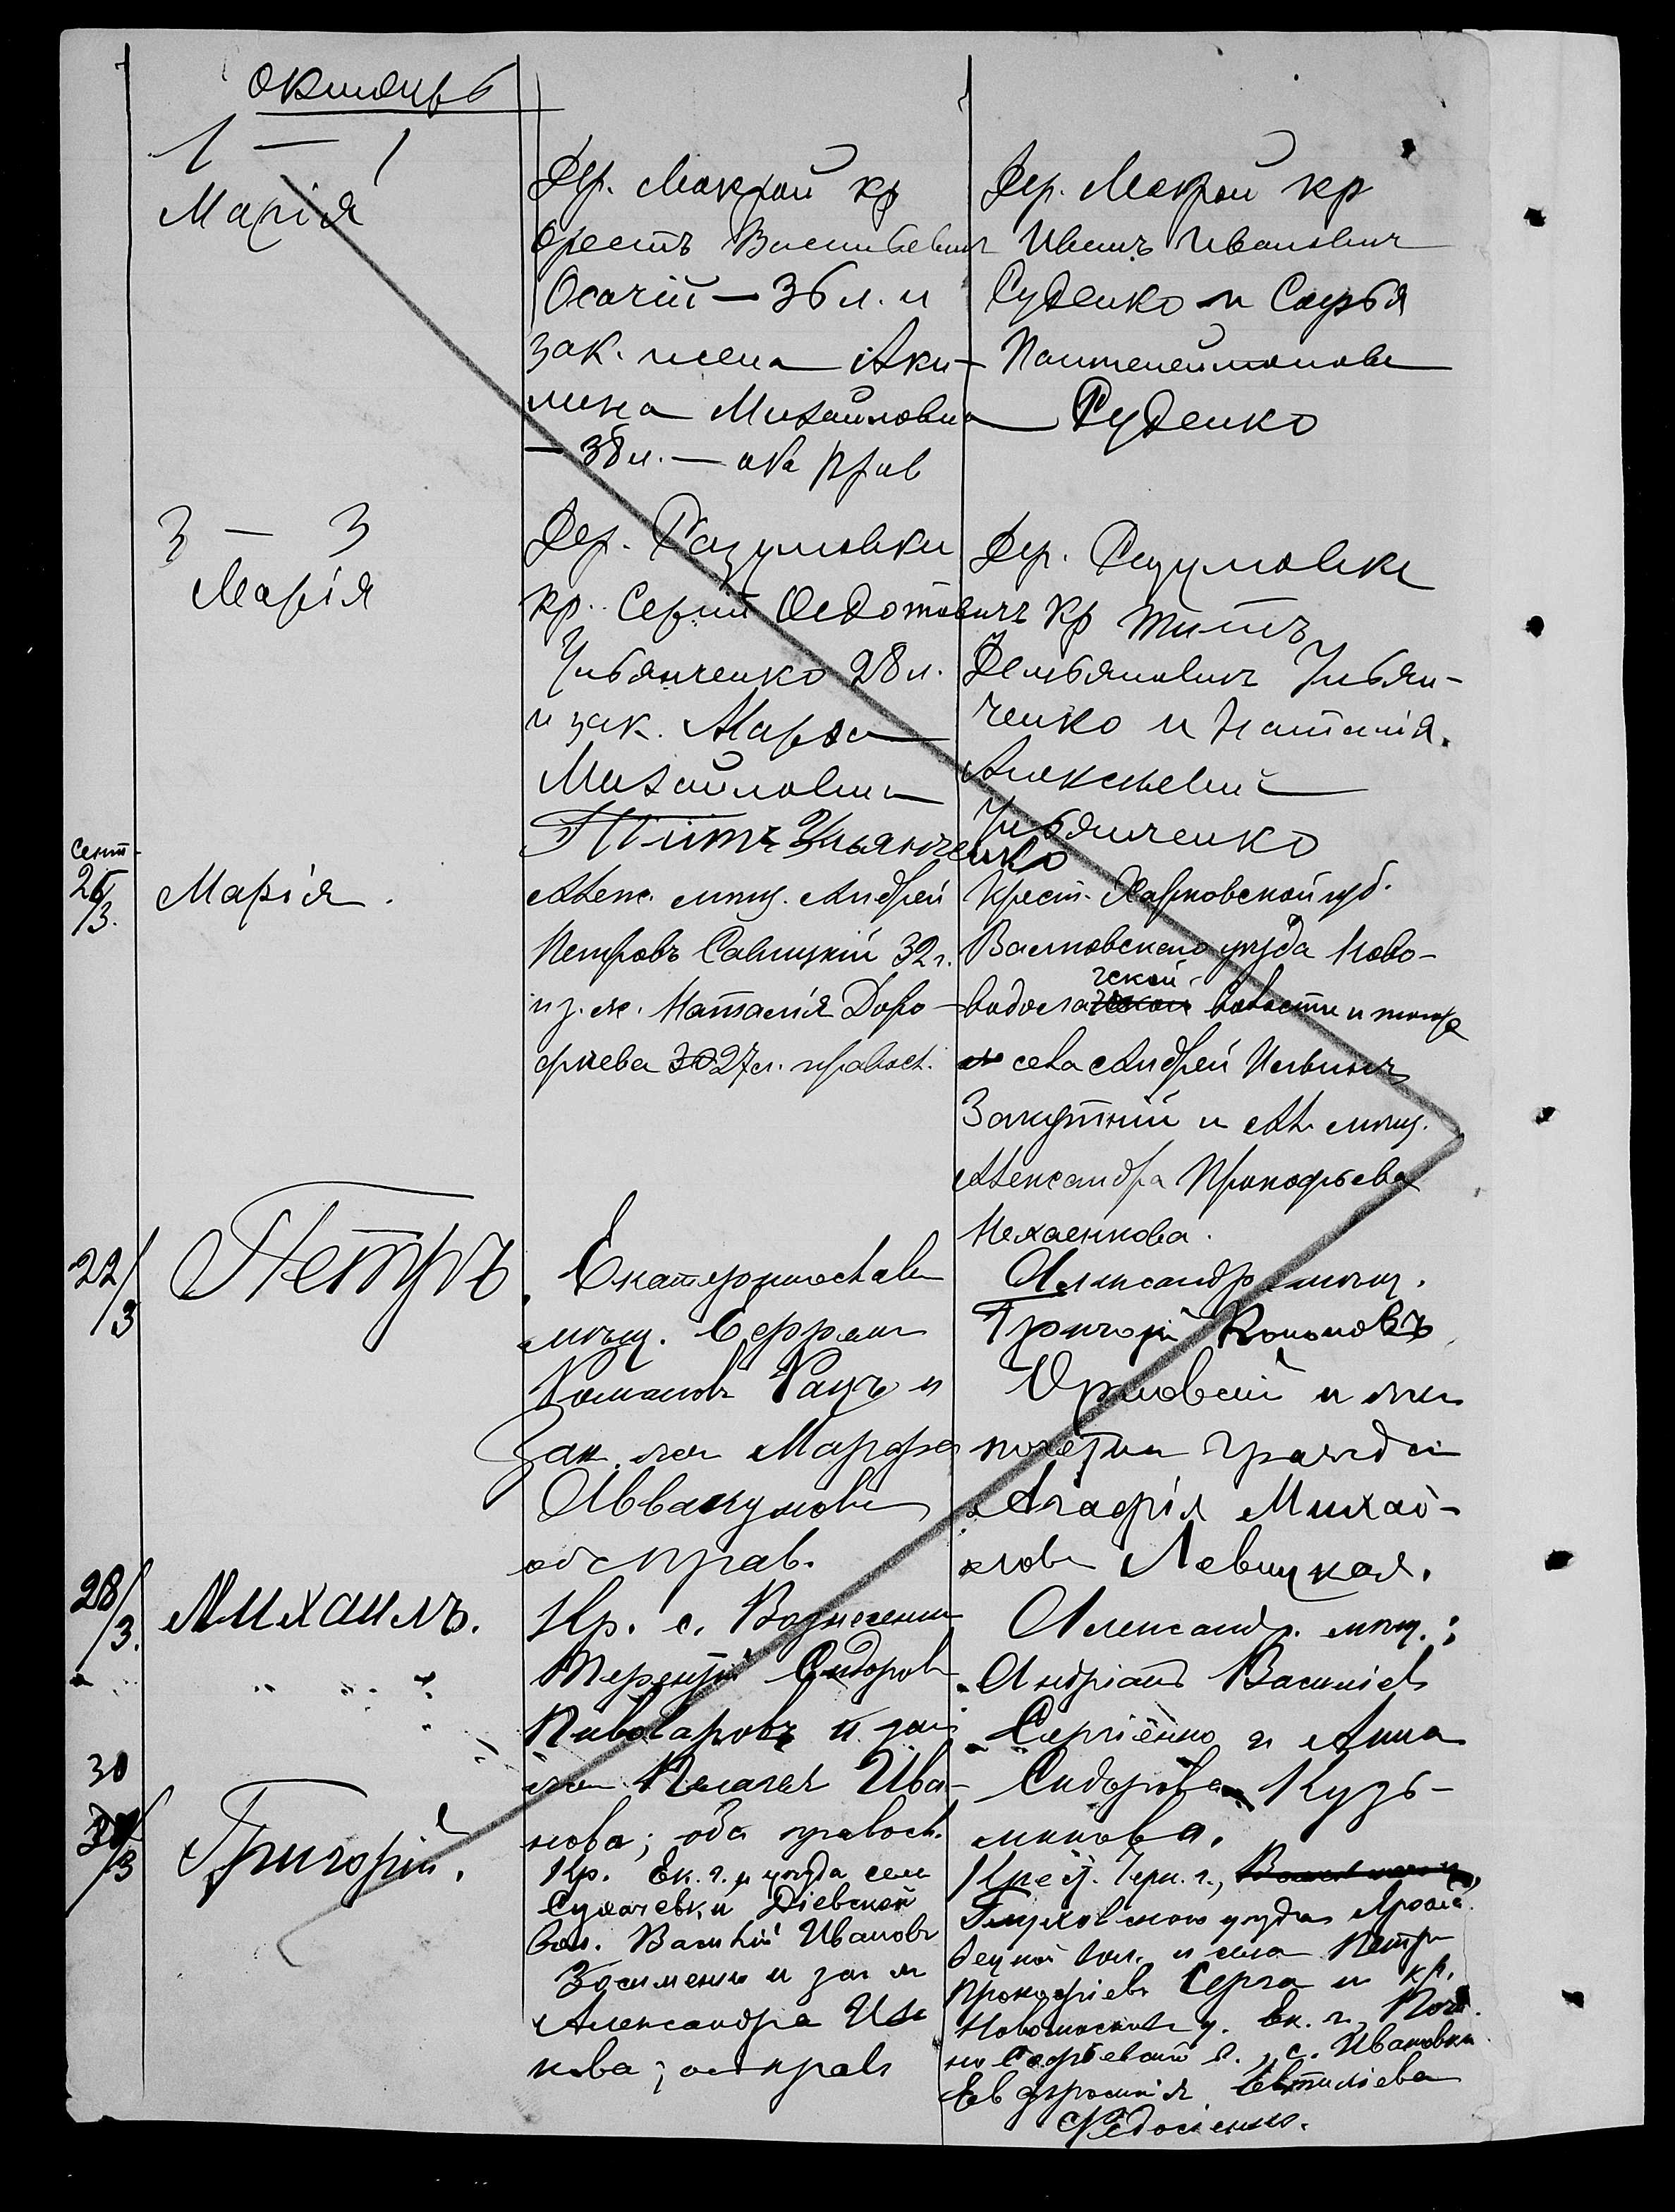 октябрь
1 — 1
Марія
Дер. Мокрой кр
Орестъ Васильевич
Осачій — 36 л. и
зак. жена Аки-
лина Михайловна
— 38 л. — оба прав
Дер. Мокрой кр
Иванъ Иванович
Руденко и Софья
Пантелеймонова
Руденко
3 — 3
Марія
Дер. Разумовки
кр. Сергій Федотовичъ
Ульянченко 28 л.
и зак. Марѳа
Михайловна
Ульянченко
Дер. Разумовки
Кр Титъ
Демьяновичъ Ульян-
ченко и Наталія
Алексѣевна
Ульянченко
Сент-
26/3.
Марія.
Алек. мѣщ. Андрей
Петровъ Савицкій 32 г.
и з. ж. Наталія Доро-
фѣева 27 л. правосл.
Крест. Харковской губ.
Валковскаго уѣзда Ново-
водолажской волости и того же
села Андрей Ильинъ
и Ал. мѣщ.
Александра Прокофьева
22/3
Петръ
Екатеринослав
мѣщ. Ефрем
Романовъ Рацъ и
Зак. жен Марфа
Аввакумова
об. прав.
Александр. мѣщ.
Григорій Кононовъ
Орловскій и
почетн гражда
Агафія Михай-
лова Левицкая.
28/3.
Михаилъ.
Кр. с. Вознесенки
Терентій Сидоров
Пивоваровъ и зак
жен Пелагея Ива-
нова; оба правосл.
Александр. мѣщ.:
Андріанъ Василіев
Сергіенко и Анна
Сидорова Кузь-
минова.
30
30/3
Григорій.
Кр. Ек. г. и уѣзда села
Сухачевки Діевской
вол. Василій Ивановъ
и зак ж
Александра
кова; об прав
Крест. Черн. г.,
Глуховскаго уѣзда Яросла
вецкой вол. и села Петръ
Прокофіевъ Серга и кр.
Новомосковс у. Ек. г.,
в., с. Ивановки
Евфросинія Евтихіева
Федосіенко.